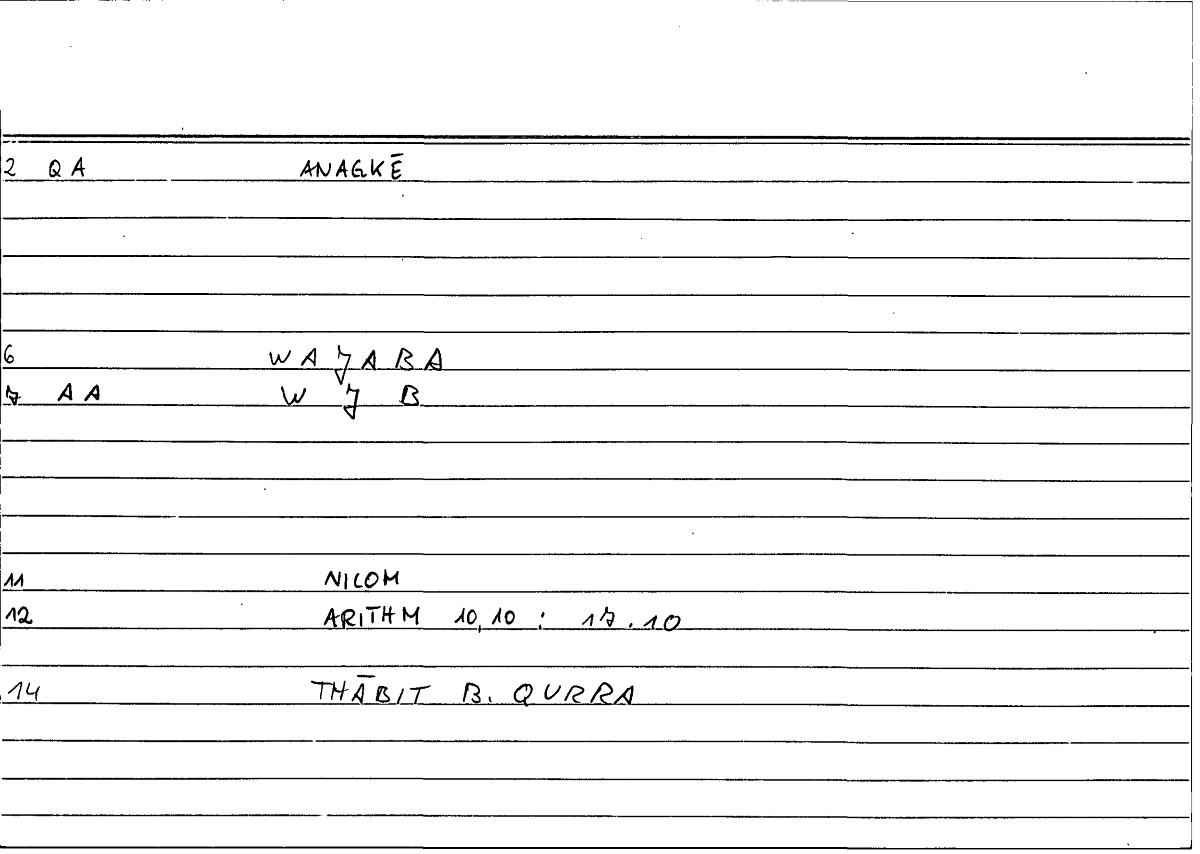 2 QA ANAGKĒ
6 WAJABA
7 AA W J B
11 NICOM
12 ARITHM 10,10 : 17.10
14 THĀBIT B. QURRA